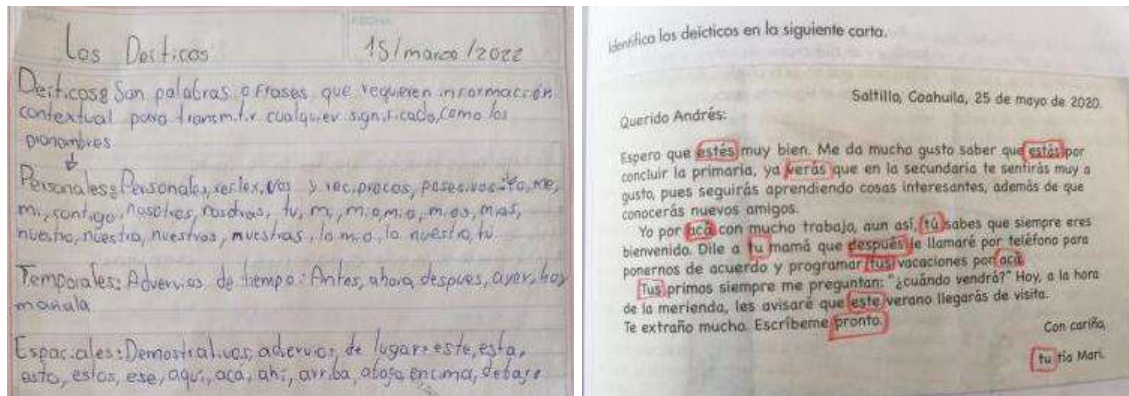 Los Deícticos 15/marzo/2022
Deícticos: Son palabras o frases que requieren información
contextual para transmitir cualquier significado, como los
pronombres
Personales: Personales, reflexivos y recíprocos, posesivos: yo, me,
mi, contigo, nosotros, nosotras, tu, mi, mío, mía, míos, mías,
nuestro, nuestra, nuestros, nuestras, lo mío, lo nuestro, tú
Temporales: Adverbios de tiempo: Antes, ahora, despues, ayer, hoy
mañala
Espaciales: Demostrativos, adervios, de lugar: este, esta,
esto, estos, ese, aquí, acá, ahí, arriba, abajo encima, debajo
Identifica los deícticos en la siguiente carta.
Saltillo, Coahuila, 25 de mayo de 2020.
Querido Andrés:
Espero que estés muy bien. Me da mucho gusto saber que estás por
concluir la primaria, ya verás que en la secundaria te sentirás muy a
gusto, pues seguirás aprendiendo cosas interesantes, además de que
conocerás nuevos amigos.
Yo por acá con mucho trabajo, aun así, tú sabes que siempre eres
bienvenido. Dile a tu mamá que después le llamaré por teléfono para
ponernos de acuerdo y programar tus vacaciones por acá.
Tus primos siempre me preguntan: "¿cuándo vendrá?" Hoy, a la hora
de la merienda, les avisaré que este verano llegarás de visita.
Te extraño mucho. Escríbeme pronto.
Con cariño,
tu tía Mari.